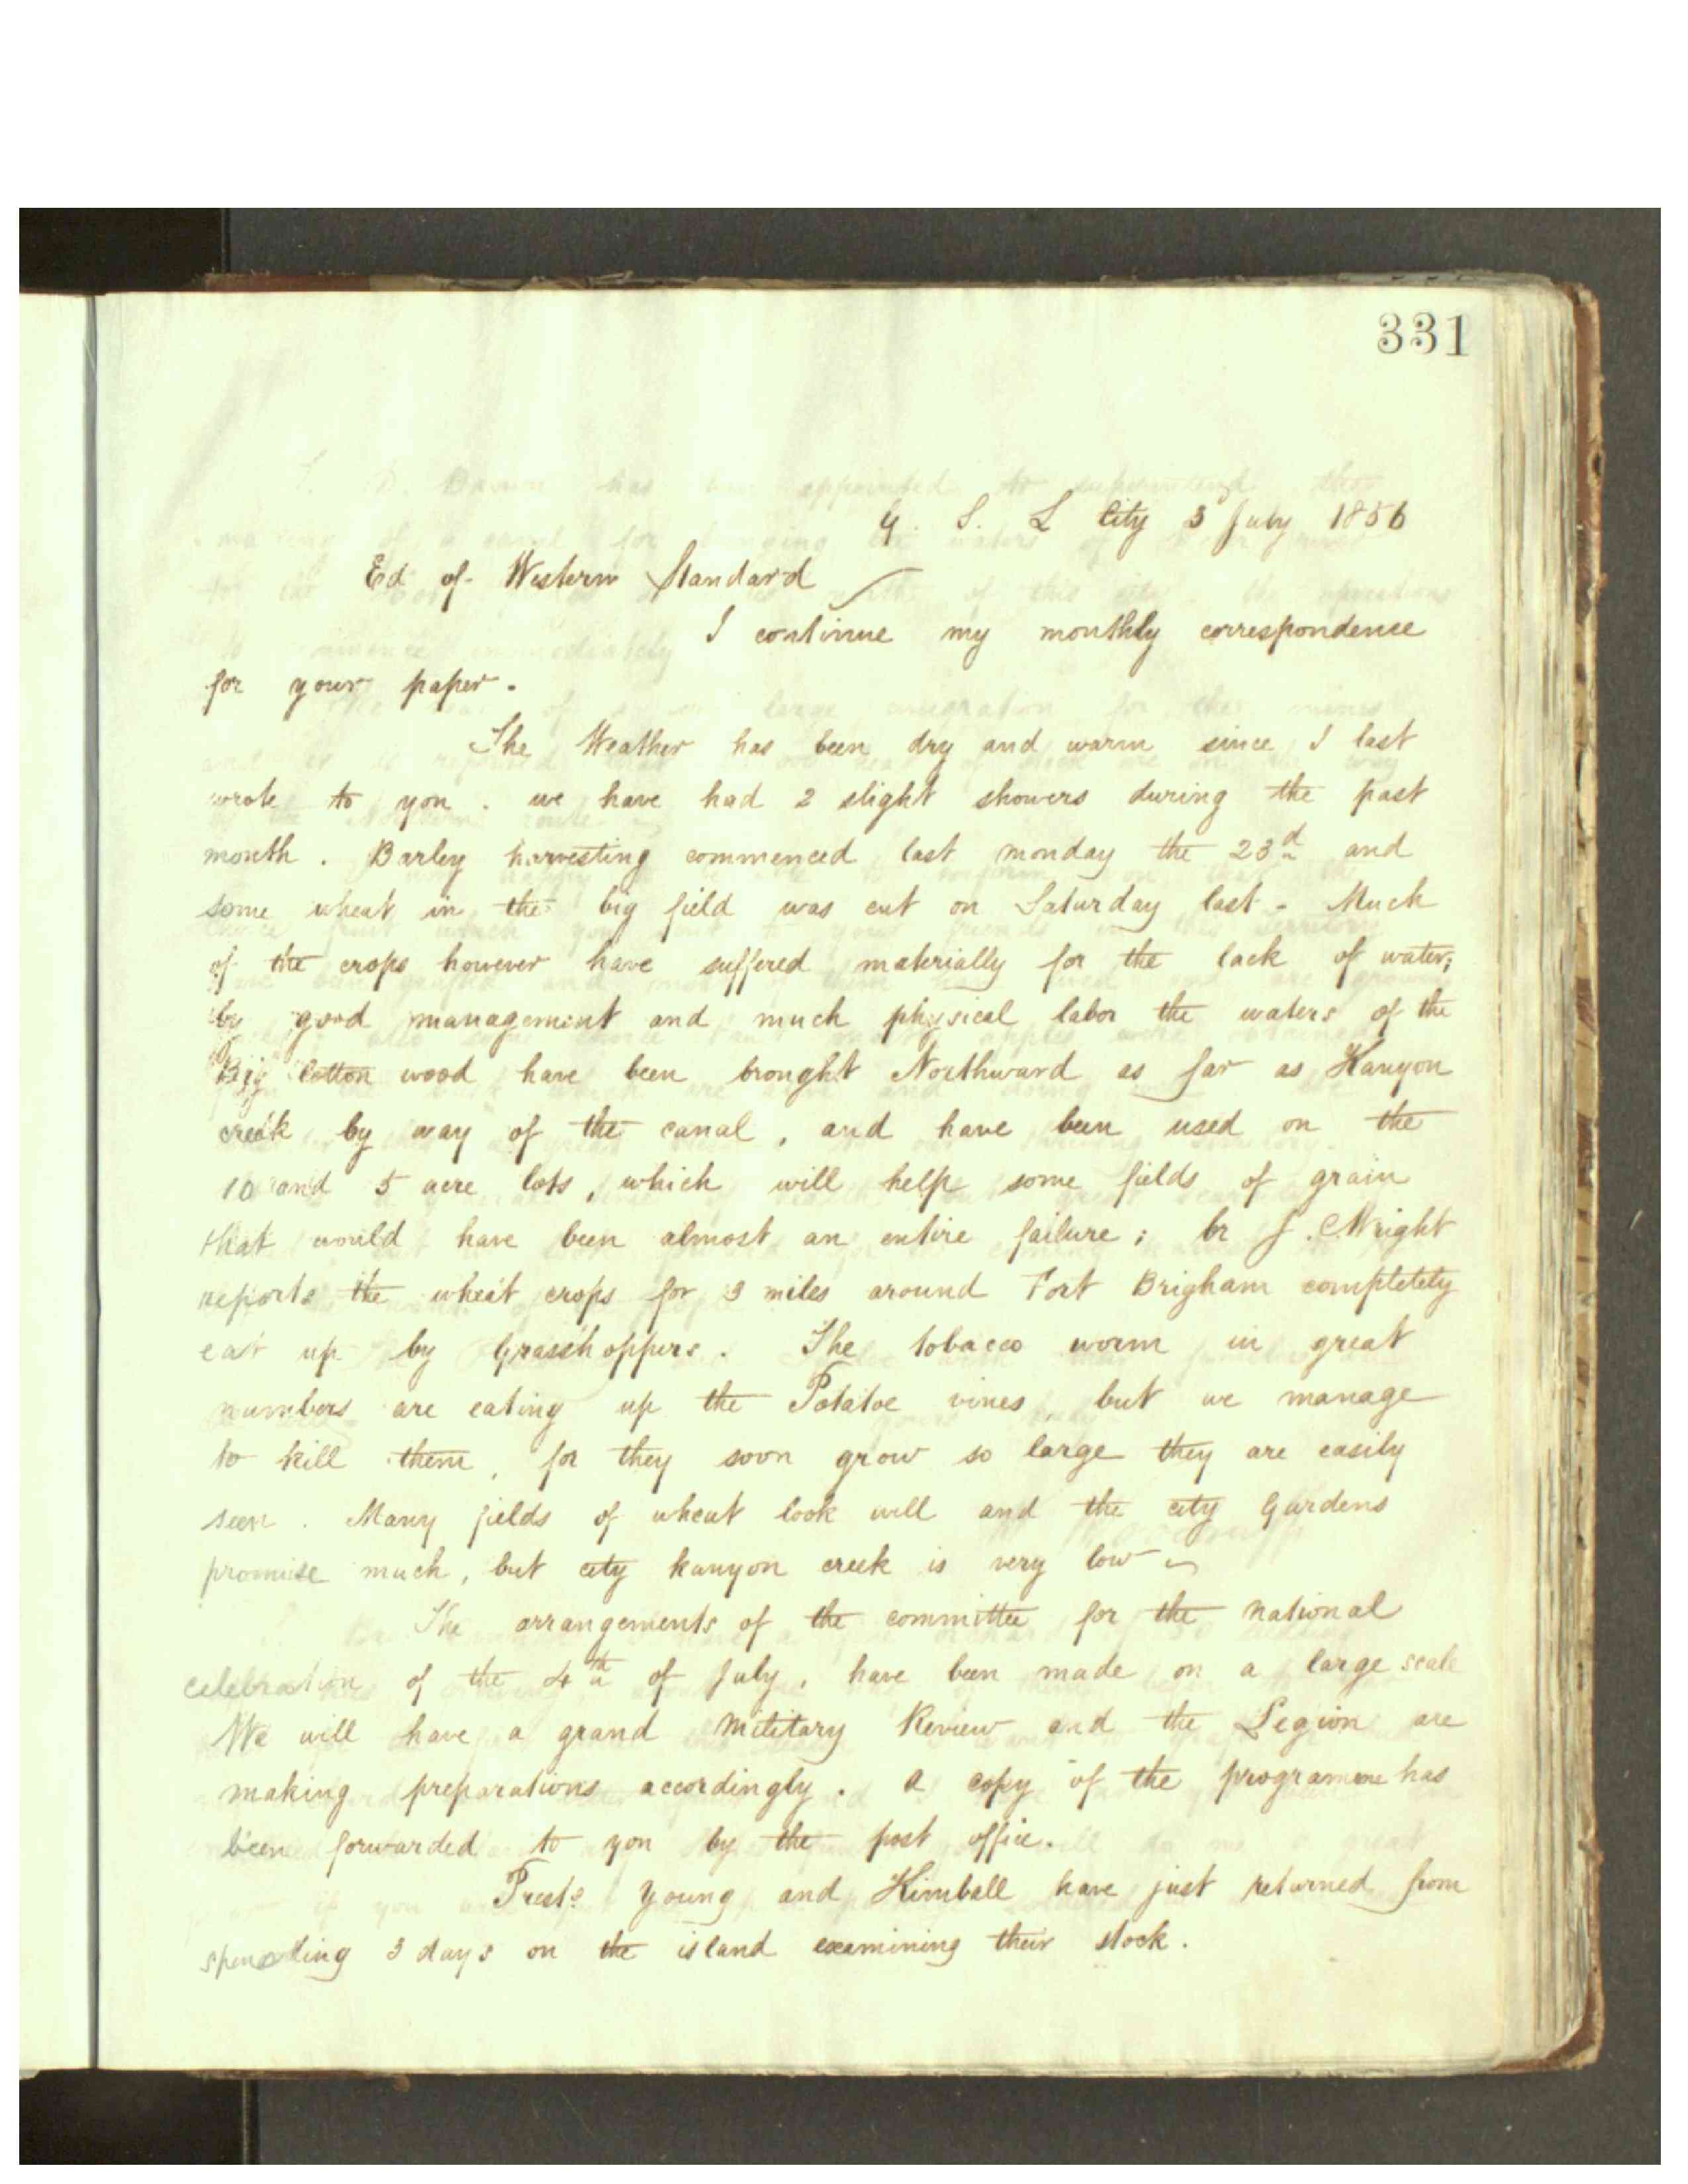 331
G. S. L City 3 July 1856
Ed of Western Standard
I continue my monthly correspondence
for your paper.
The Weather has been dry and warm since I last
wrote to you. we have had 2 slight showers during the past
month. Barley harvesting commenced last monday the 23d and
some wheat in the big field was cut on Saturday last - Much
of the crops however have suffered materially for the lack of water;
by good management and much physical labor the waters of the
Big Cotton wood have been brought Northward as far as Kanyon
creek by way of the canal, and have been used on the
10 and 5 acre lots, which will help some fields of grain
that would have been almost an entire failure; br J. C Wright
reports the wheat crops for 3 miles around Fort Brigham completely
eat up by Grasshoppers. The tobacco worm in great
numbers are eating up the Potatoe vines, but we manage
to kill them, for they soon grow so large they are easily
seen. Many fields of wheat look well and the city Gardens
promise much, but city kanyon creek is very low
The arrangements of the committee for the national
celebration of the 4th of July, have been made on a large scale
We will have a grand Military Review and the Legion are
making preparations accordingly. a copy of the programme has
been forwarded to you by the post office.
Prests Young and Kimball have just returned from
spending 3 days on the island examining their stock.